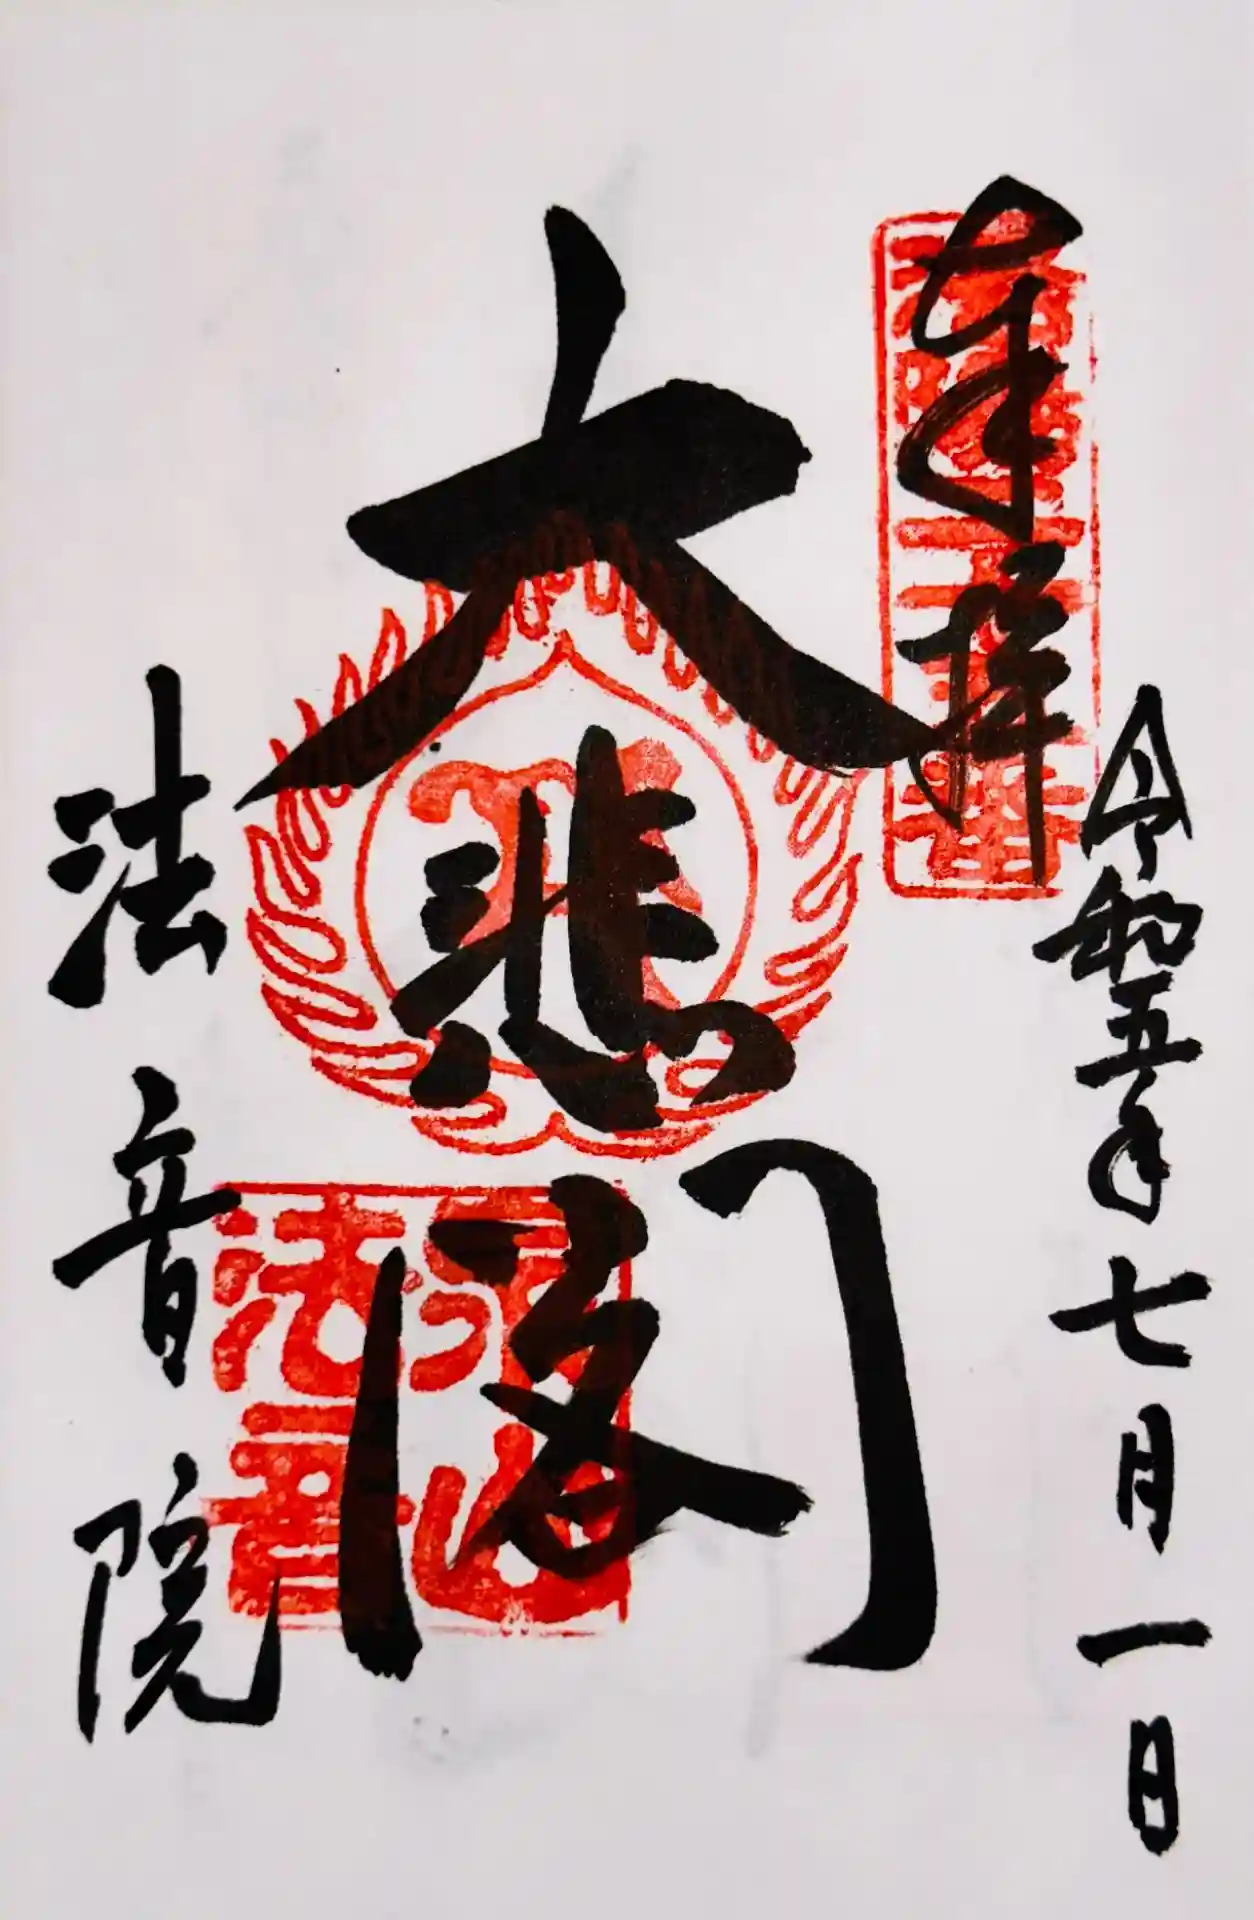 奉拝
令和五年七月一日
大悲閣
法音院
泉山
法音